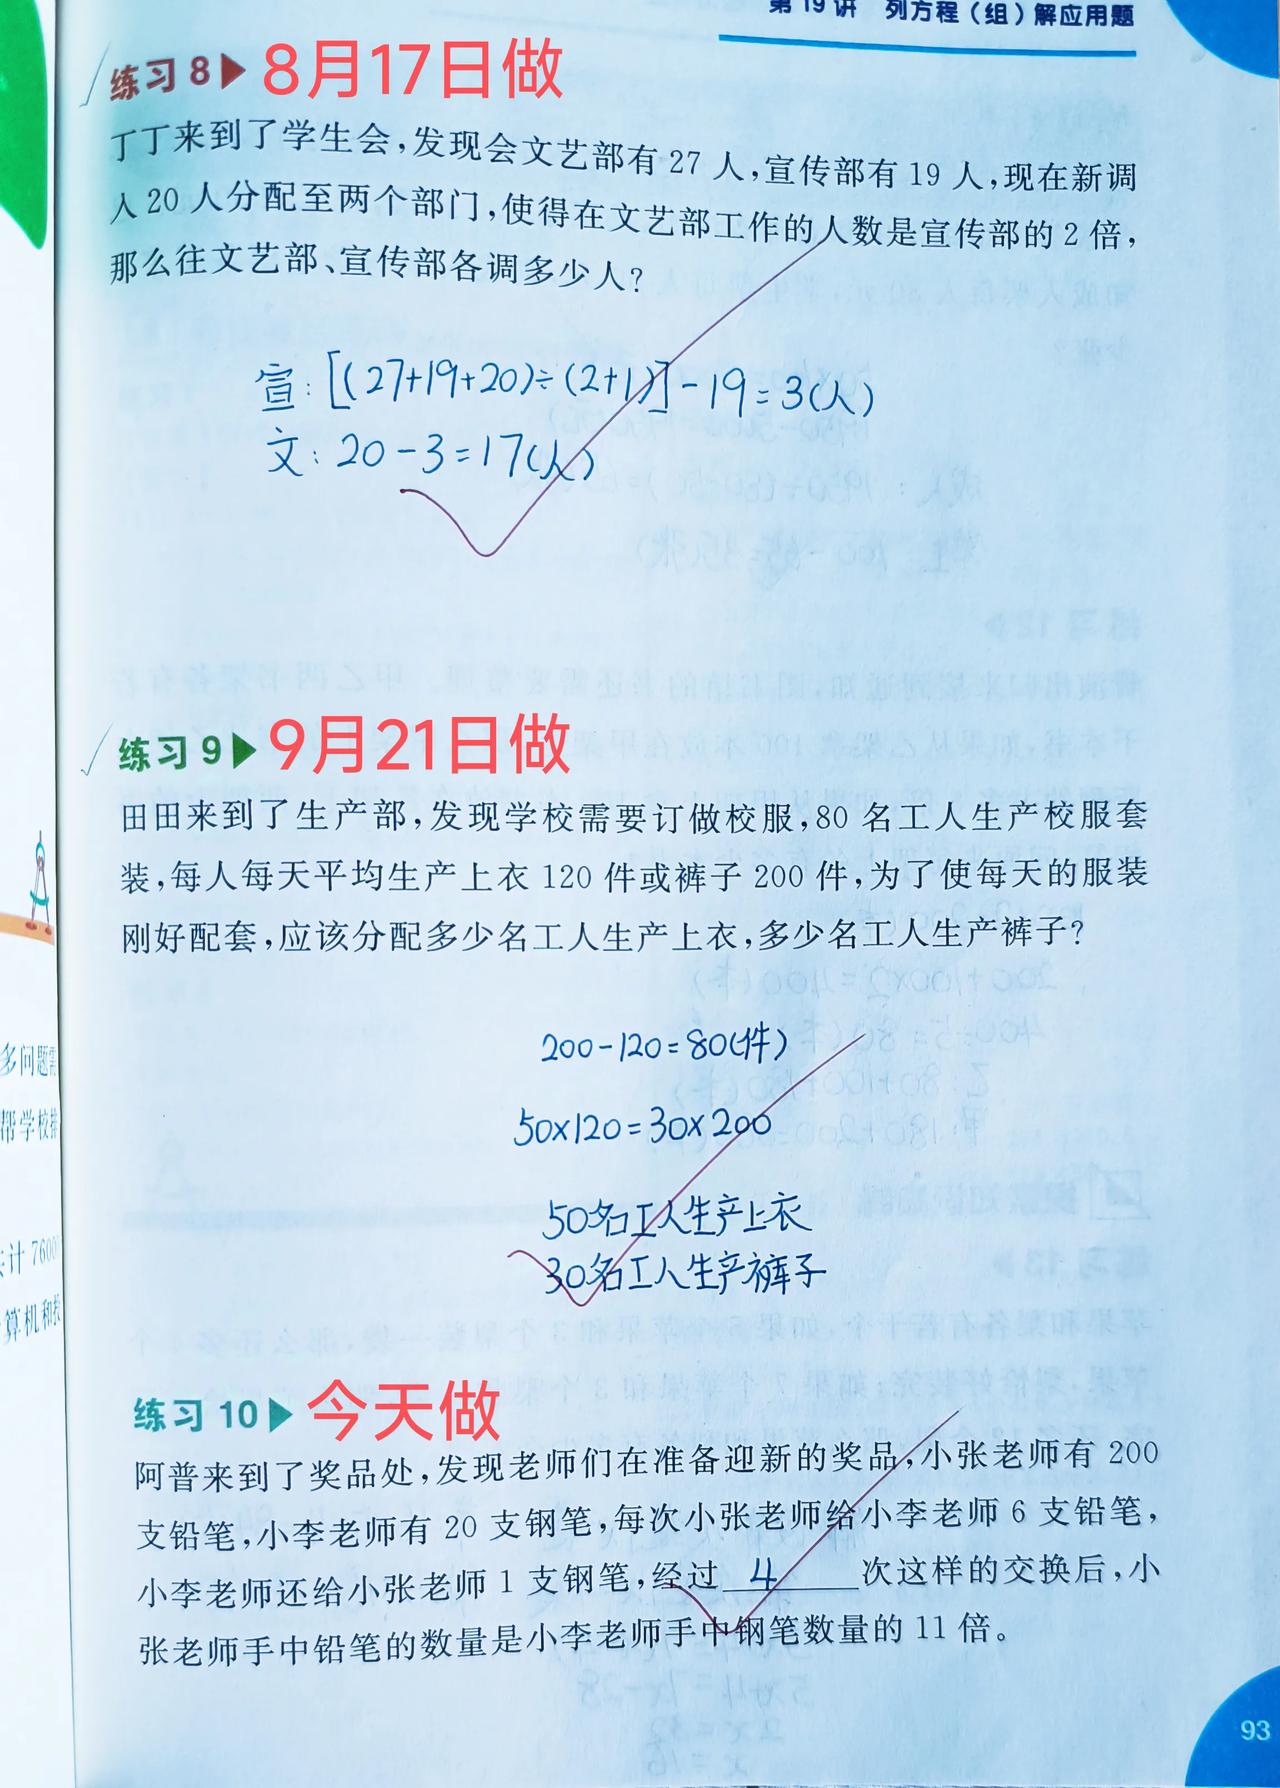 第19讲 列方程（组）解应用题
练习8▶ 8月17日做
丁丁来到了学生会，发现会文艺部有27人，宣传部有19人，现在新调
入20人分配至两个部门，使得在文艺部工作的人数是宣传部的2倍，
那么往文艺部、宣传部各调多少人？
宣：[(27+19+20)÷(2+1)]-19=3(人)
文：20-3=17(人)
练习9▶ 9月21日做
田田来到了生产部，发现学校需要订做校服，80名工人生产校服套
装，每人每天平均生产上衣120件或裤子200件，为了使每天的服装
刚好配套，应该分配多少名工人生产上衣，多少名工人生产裤子？
200-120=80(件)
50×120=30×200
50名工人生产上衣
30名工人生产裤子
练习10▶ 今天做
阿普来到了奖品处，发现老师们在准备迎新的奖品，小张老师有200
支铅笔，小李老师有20支钢笔，每次小张老师给小李老师6支铅笔，
小李老师还给小张老师1支钢笔，经过 4 次这样的交换后，小
张老师手中铅笔的数量是小李老师手中钢笔数量的11倍。
多问题
帮学校
计7600
算机和
93